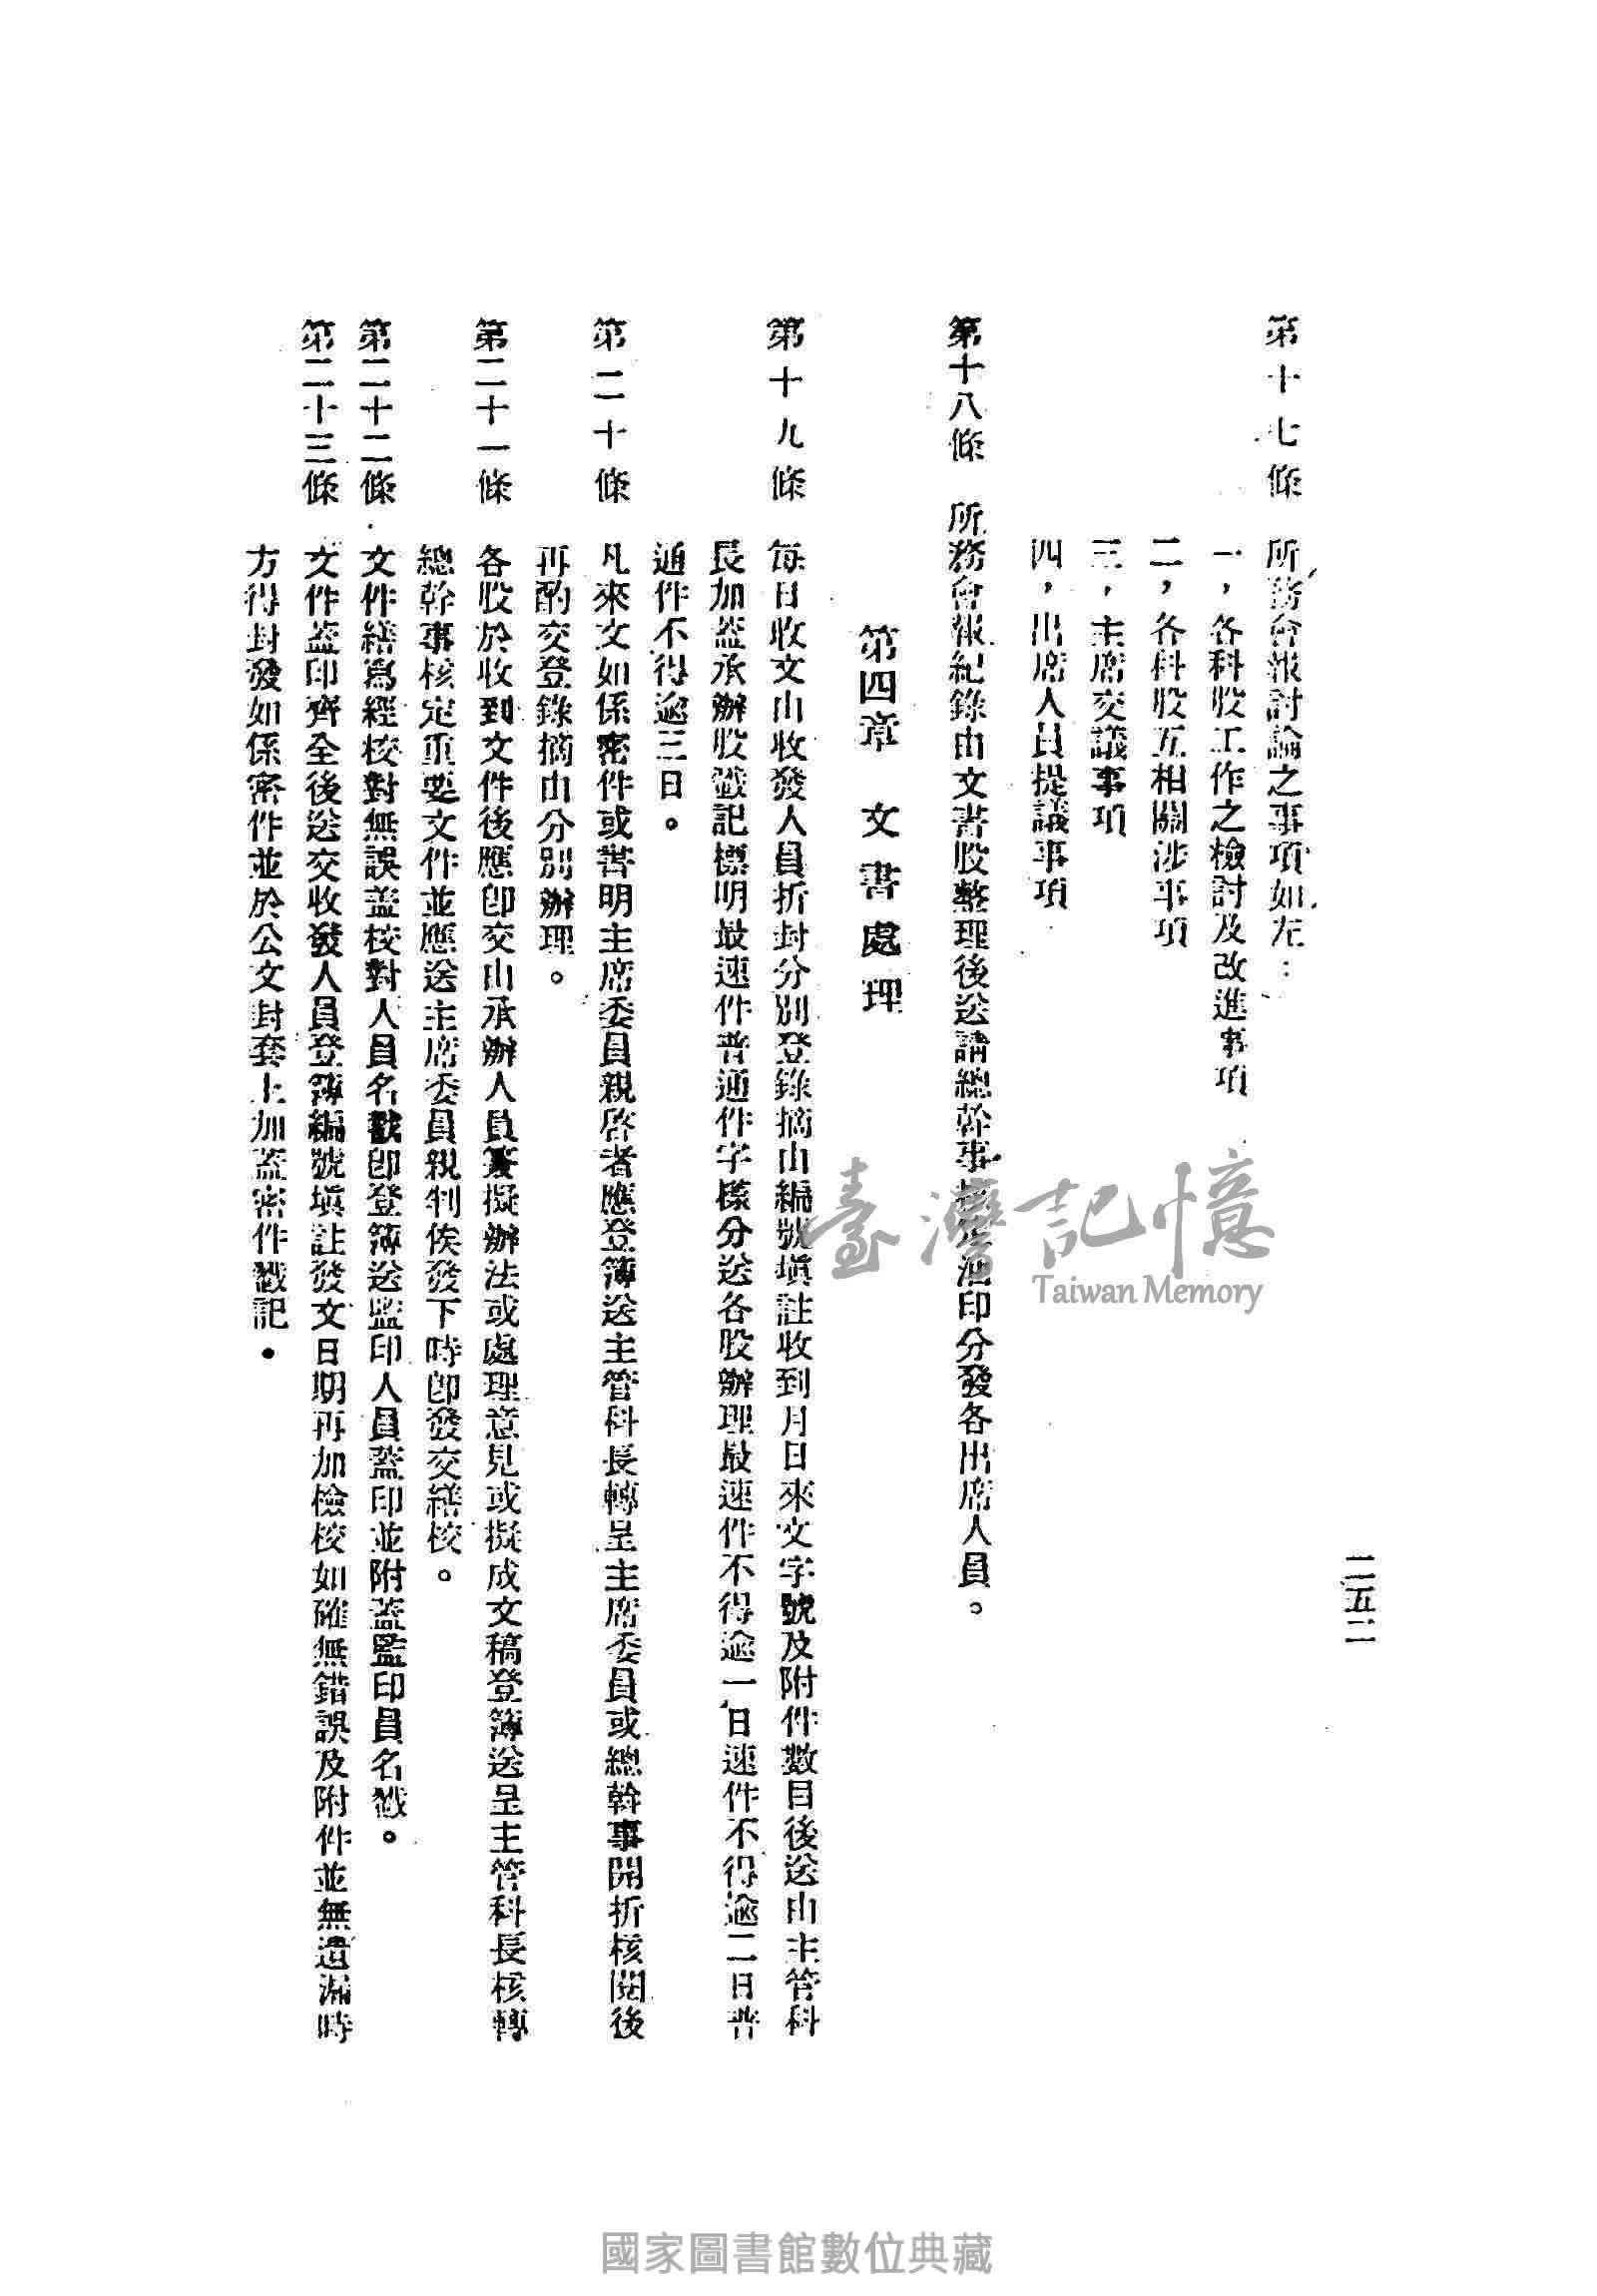 二五二
第十七條　所務會報討論之事項如左：
一，各科股工作之檢討及改進事項
二，各科股互相關涉事項
三，主席交議事項
四，出席人員提議事項
第十八條　所務會報紀錄由文書股整理後送請總幹事核定油印分發各出席人員。
第四章　文書處理
第十九條　每日收文由收發人員折封分別登錄摘由編號塡註收到月日來文字號及附件數目後送由主管科
長加蓋承辦股戳記標明最速件普通件字樣分送各股辦理最速件不得逾一日速件不得逾二日普
通件不得逾三日。
第二十條　凡來文如係密件或書明主席委員親啓者應登簿送主管科長轉呈主席委員或總幹事開折核閱後
再酌交登錄摘由分別辦理。
第二十一條　各股於收到文件後應卽交由承辦人員簽擬辦法或處理意見或擬成文稿登簿送呈主管科長核轉
總幹事核定重要文件並應送主席委員親判俟發下時卽發交繕校。
第二十二條　文件繕寫經校對無誤蓋校對人員名戳卽登簿送監印人員蓋印並附蓋監印員名戳。
第二十三條　文件蓋印齊全後送交收發人員登簿編號塡註發文日期再加檢校如確無錯誤及附件並無遺漏時
方得封發如係密件並於公文封套上加蓋密件戳記．
臺灣記憶
Taiwan Memory
國家圖書館數位典藏